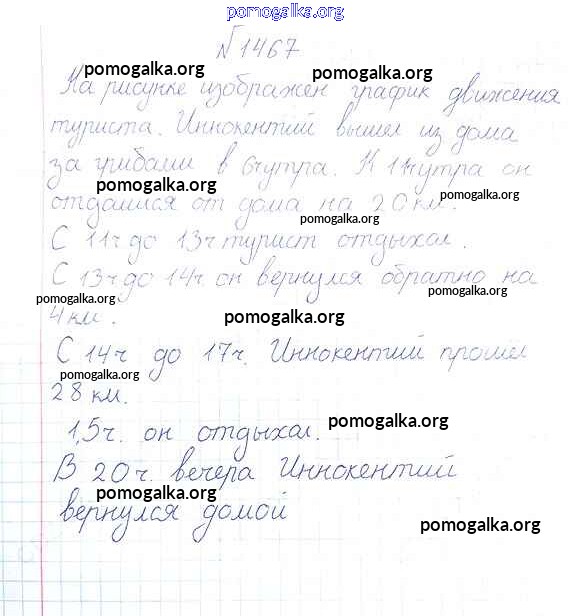 pomogalka.org
№1467
pomogalka.org pomogalka.org
На рисунке изображен график движения
туриста. Иннокентий вышел из дома
pomogalka.org
за грибами в 6ч утра. К 11ч утра он
pomogalka.org pomogalka.org
отдалился от дома на 20 км.
pomogalka.org
С 11ч до 13ч турист отдыхал.
С 13ч до 14ч. он вернулся обратно на
pomogalka.org pomogalka.org
4 км.
pomogalka.org
С 14ч до 17ч. Иннокентий прошел
pomogalka.org
28 км.
pomogalka.org
1,5ч. он отдыхал.
В 20ч. вечера Иннокентий
pomogalka.org
вернулся домой
pomogalka.org